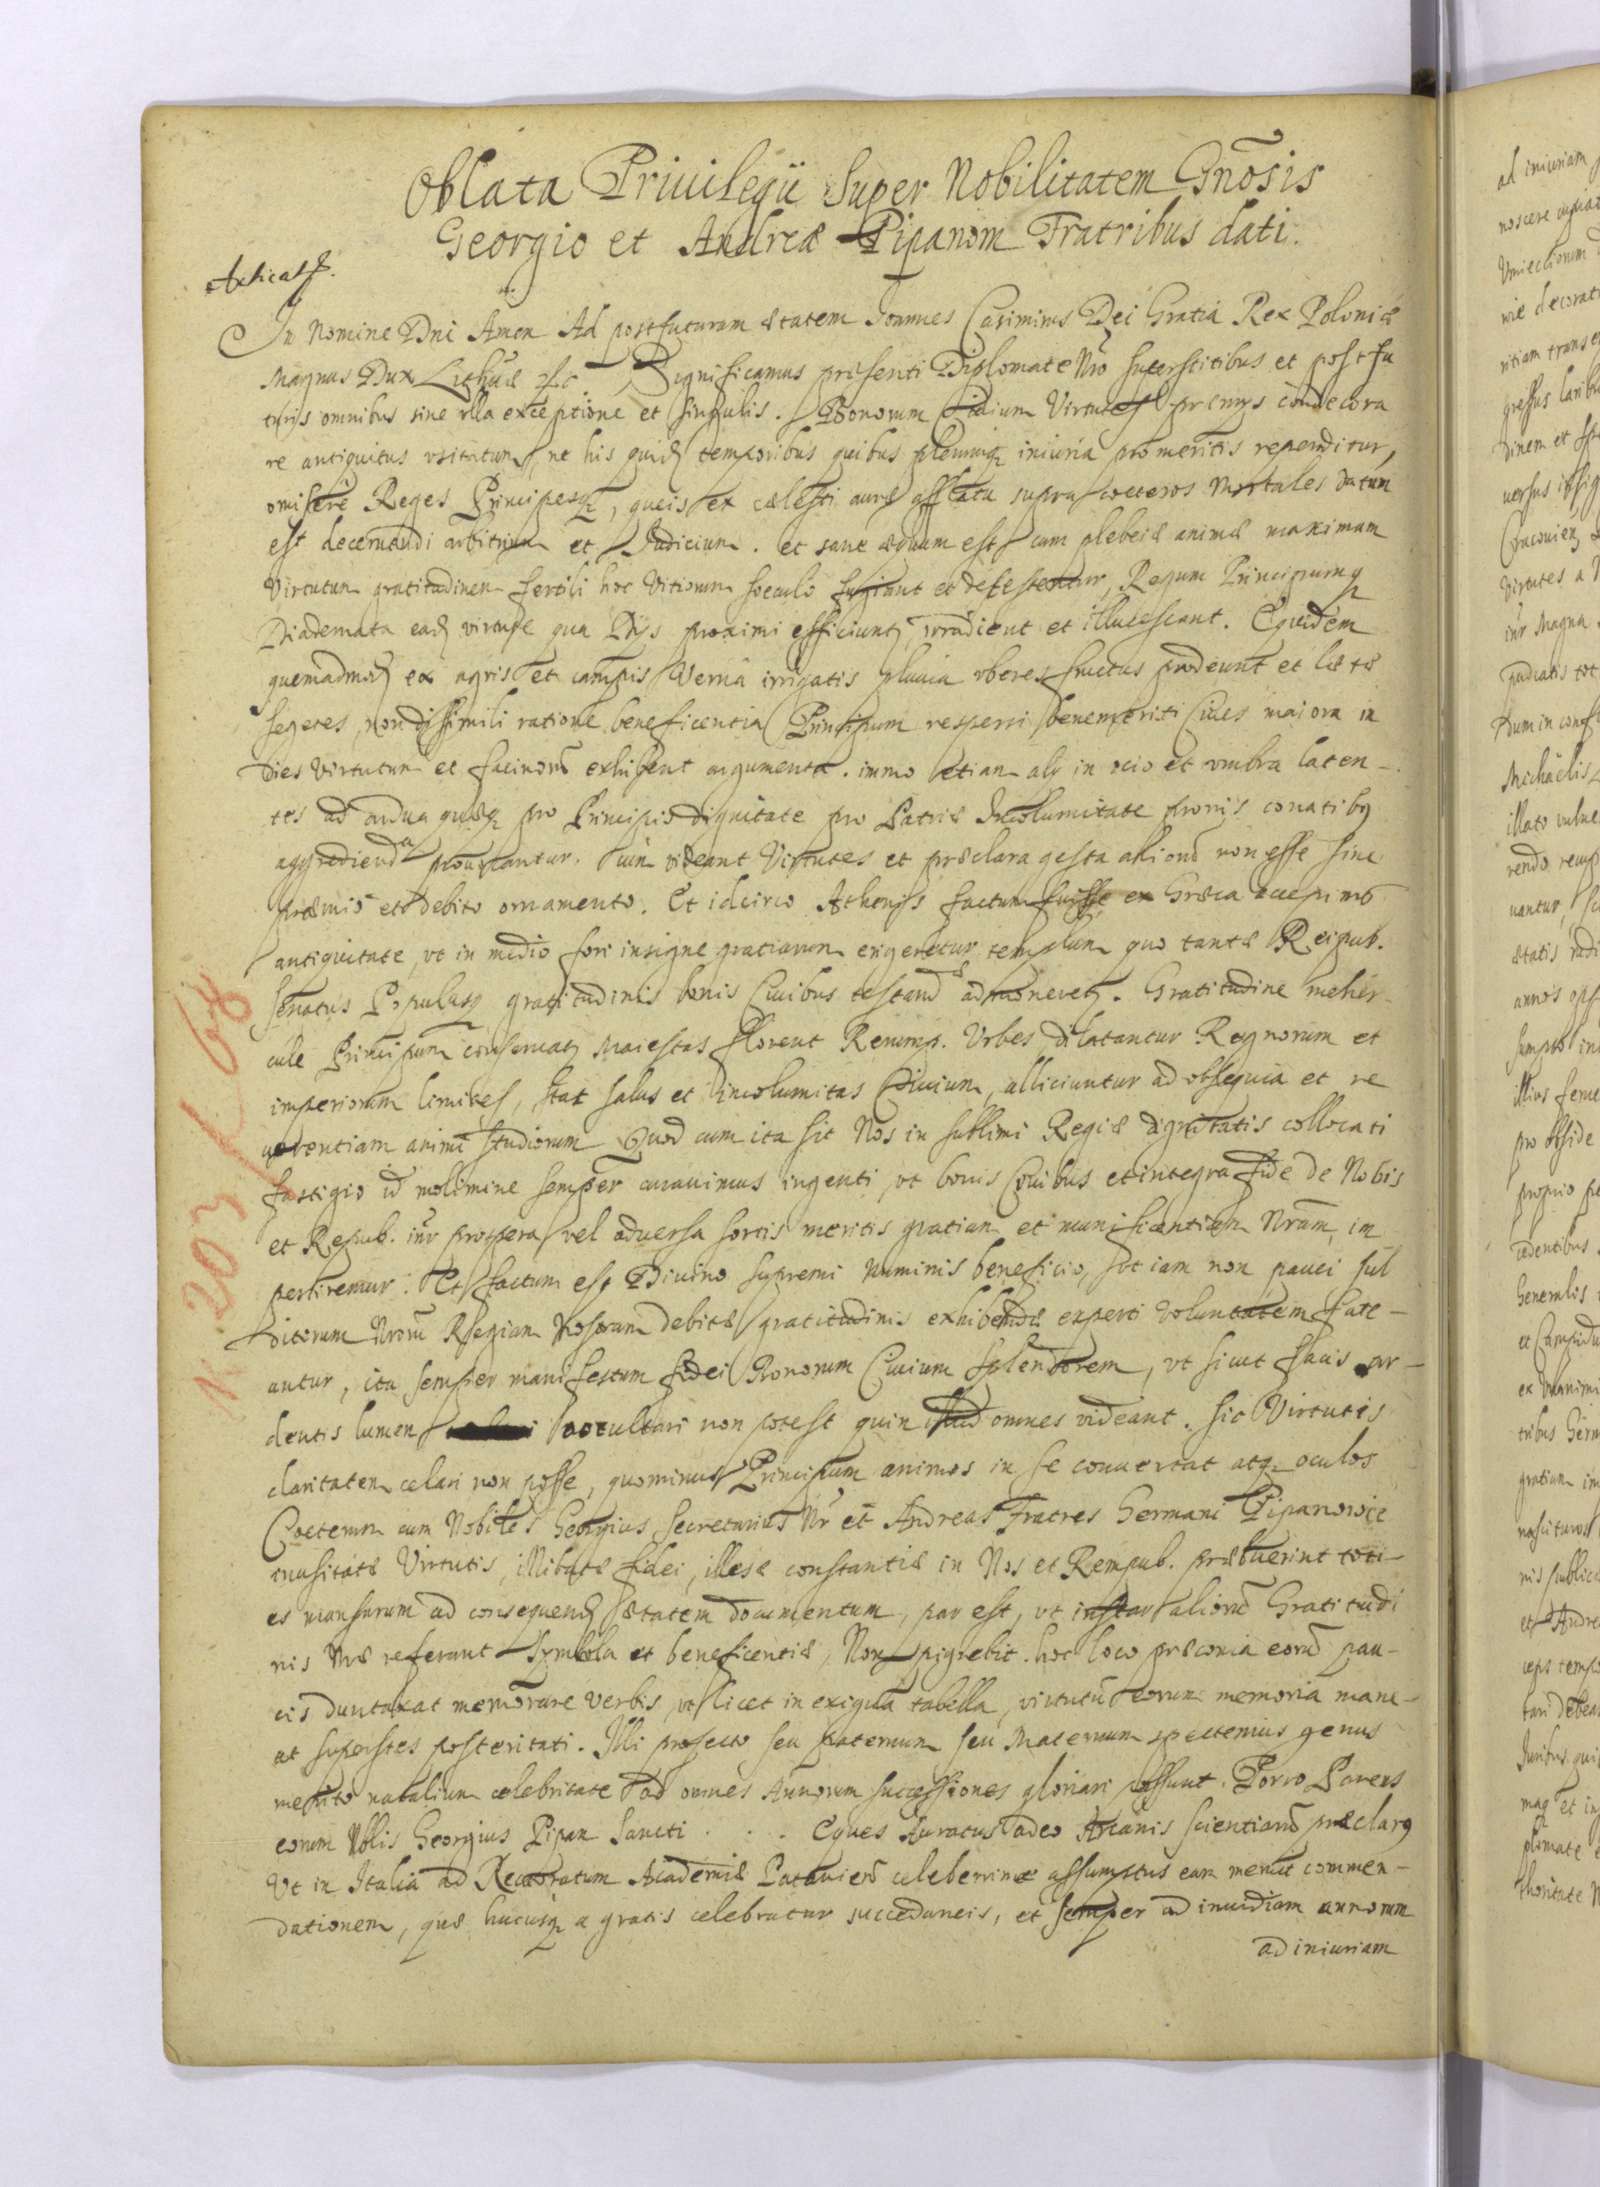 Oblata Priuilegii Super Nobilitatem Gnosis
Georgio et Andreæ Pipanom Fratribus dati.
In Nomine Dni Amen Ad postfuturam ætatem Ioannes Casimirus Dei Gratia Rex Poloniæ
Magnus Dux Lithuæ etc Significamus præsenti Diplomate Nro superstitibus et postfu
turis omnibus sine ulla exceptione et singulis. Bonorum Ciuium Virtutes præmijs condecora
re antiquitus usitatum, ne his quid temporibus quibus plerumq iniuria pro meritis rependitur,
omisere Reges Principesq, queis ex cælesti auræ afflatu supra coeteros Mortales datum
est decernendi arbitrium et Iudicium. et sane æquum est cum plebeiæ animæ maximam
Virtutum gratitudinem fertili hoc Vitiorum soeculo fugiant et detestentur, Regum Principumq
Diademata ead virtute qua Dijs proximi efficiunt, irradient et illucescant. Equidem
quemadmod ex agris et campis Verna irrigatis pluuia uberes fructus prodeunt et lætæ
segetes, non dissimili ratione beneficentia Principum respersi benemeriti Ciues maiora in
dies Virtutum et facinorum exhibent argumenta. immo etiam alij in ocio et umbra laten-
tes ad ardua quæq pro Principis dignitate pro Patriæ Incolumitate pronis conatibq
aggredienda prouocantur. cum videant Virtutes et præclara gesta aliorum non esse sine
præmio et debito ornamento. Et idcirco Athenis factum fuisse ex Græca accepimus
antiquitate, ut in medio fori insigne gratiarum erigeretur templum quo tantæ Reipub.
senatus Populusq gratitudinis bonis Ciuibus testandæ admoneret. Gratitudine meher-
cule Principum conseruat Maiestas florent Rerump. Urbes dilatantur Regnorum et
imperiorum limites, stat salus et incolumitas Ciuium, alliciuntur ad obsequia et re
uerentiam animi studiorum Quod cum ita sit Nos in sublimi Regiæ dignitatis collocati
fastigio id molimine semper curauimus ingenti, ut bonis Ciuibus et integra fide de Nobis
et Repub. inter prospera vel aduersa sortis meritis gratiam et munificentiam Nram, im
pertiremur. Et factum est Diuino supremi Numinis beneficio, ut iam non pauci sub
ditorum Nrorum Regiam Nostram debitæ gratitudinis exhibendæ experti voluntatem fate-
antur, ita semper manifestum fidei Bonorum Ciuium splendorem, ut sicut facis ar-
dentis lumen occultari non potest quin illud omnes videant. sic Virtutis
claritatem celari non posse, quominus Principum animos in se conuertat atq oculos
Coeterum cum Nobiles Georgius Secretarius Nr et Andreas Fratres Germani Pipanowie
inusitatæ Virtutis, illibatæ fidei, illæsæ constantiæ in Nos et Rempub. præbuerint toti-
es mansurum ad consequend ætatem documentum, par est, ut instar aliorum Gratitudi
nis Nræ referant symbola et beneficentiæ, Non pigrebit hoc loco præconia eorum pau-
cis duntaxat memorare verbis, ut licet in exigua tabella, virtutum eorum memoria mane-
at superstes posteritati. Illi profecto seu paternum seu Maternum spectemus genus
merito natalium celebritate ad omnes Annorum successiones gloriari possunt. Porro Parens
eorum Nblis Georgius Pipan Sancti . . . Eques Auratus adeo Arcanis scientiarum præclarq
Ut in Italia ad Rectoratum Academiæ Patauien celeberrimæ assumptus eam meruit commen-
dationem, quæ hucusq a gratis celebratur succedaneis, et semper ad inuidiam annorum
ad iniuriam
N 203 / 68